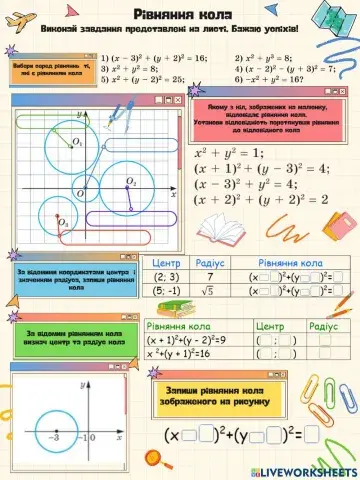 Рівняння кола
Виконай завдання представлені на листі. Бажаю успіхів!
Вибери серед рівнянь ті, які є рівнянням кола
1) (x − 3)² + (y + 2)² = 16;
2) x² + y³ = 8;
3) x² + y² = 8;
4) (x − 2)² − (y + 3)² = 7;
5) x² + (y − 2)² = 25;
6) −x² + y² = 16?
y
O₁
O
O₂
x
O₃
Якому з кіл, зображених на малюнку, відповідає рівняння кола.
Установи відповідність перетягнувши рівняння до відповідного кола
x² + y² = 1;
(x + 1)² + (y − 3)² = 4;
(x − 3)² + y² = 4;
(x + 2)² + (y + 2)² = 2
За відомими координатами центра і значенням радіуса, запиши рівняння кола
Центр Радіус Рівняння кола
(2; 3) 7 (x )²+(y )²=
(5; -1) √5 (x )²+(y )²=
За відомим рівнянням кола визнач центр та радіус кола
Рівняння кола Центр Радіус
(x + 1)²+(y - 2)²=9 ( ; )
x ²+(y + 1)²=16 ( ; )
y
−3 −1 0 x
Запиши рівняння кола зображеного на рисунку
(x )²+(y )²=
LIVEWORKSHEETS